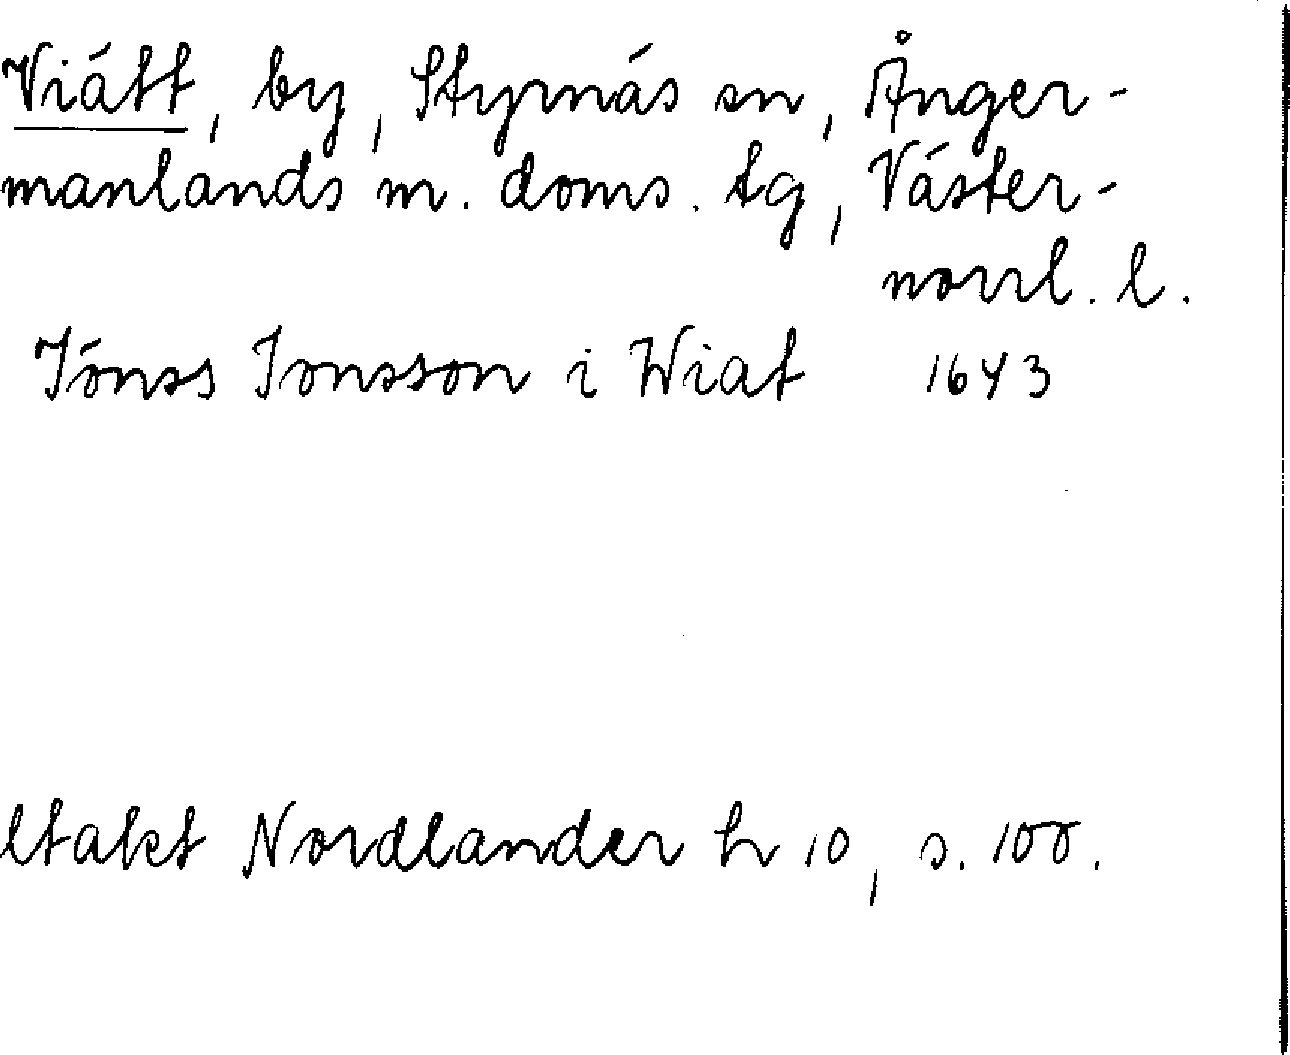 Viätt, by, Styrnäs sn, Ånger-
manlands m. doms. tg, Väster-
norrl. l.
Jönss Jonsson i Wiat 1643
ltakt Nordlander h 10, s. 100.